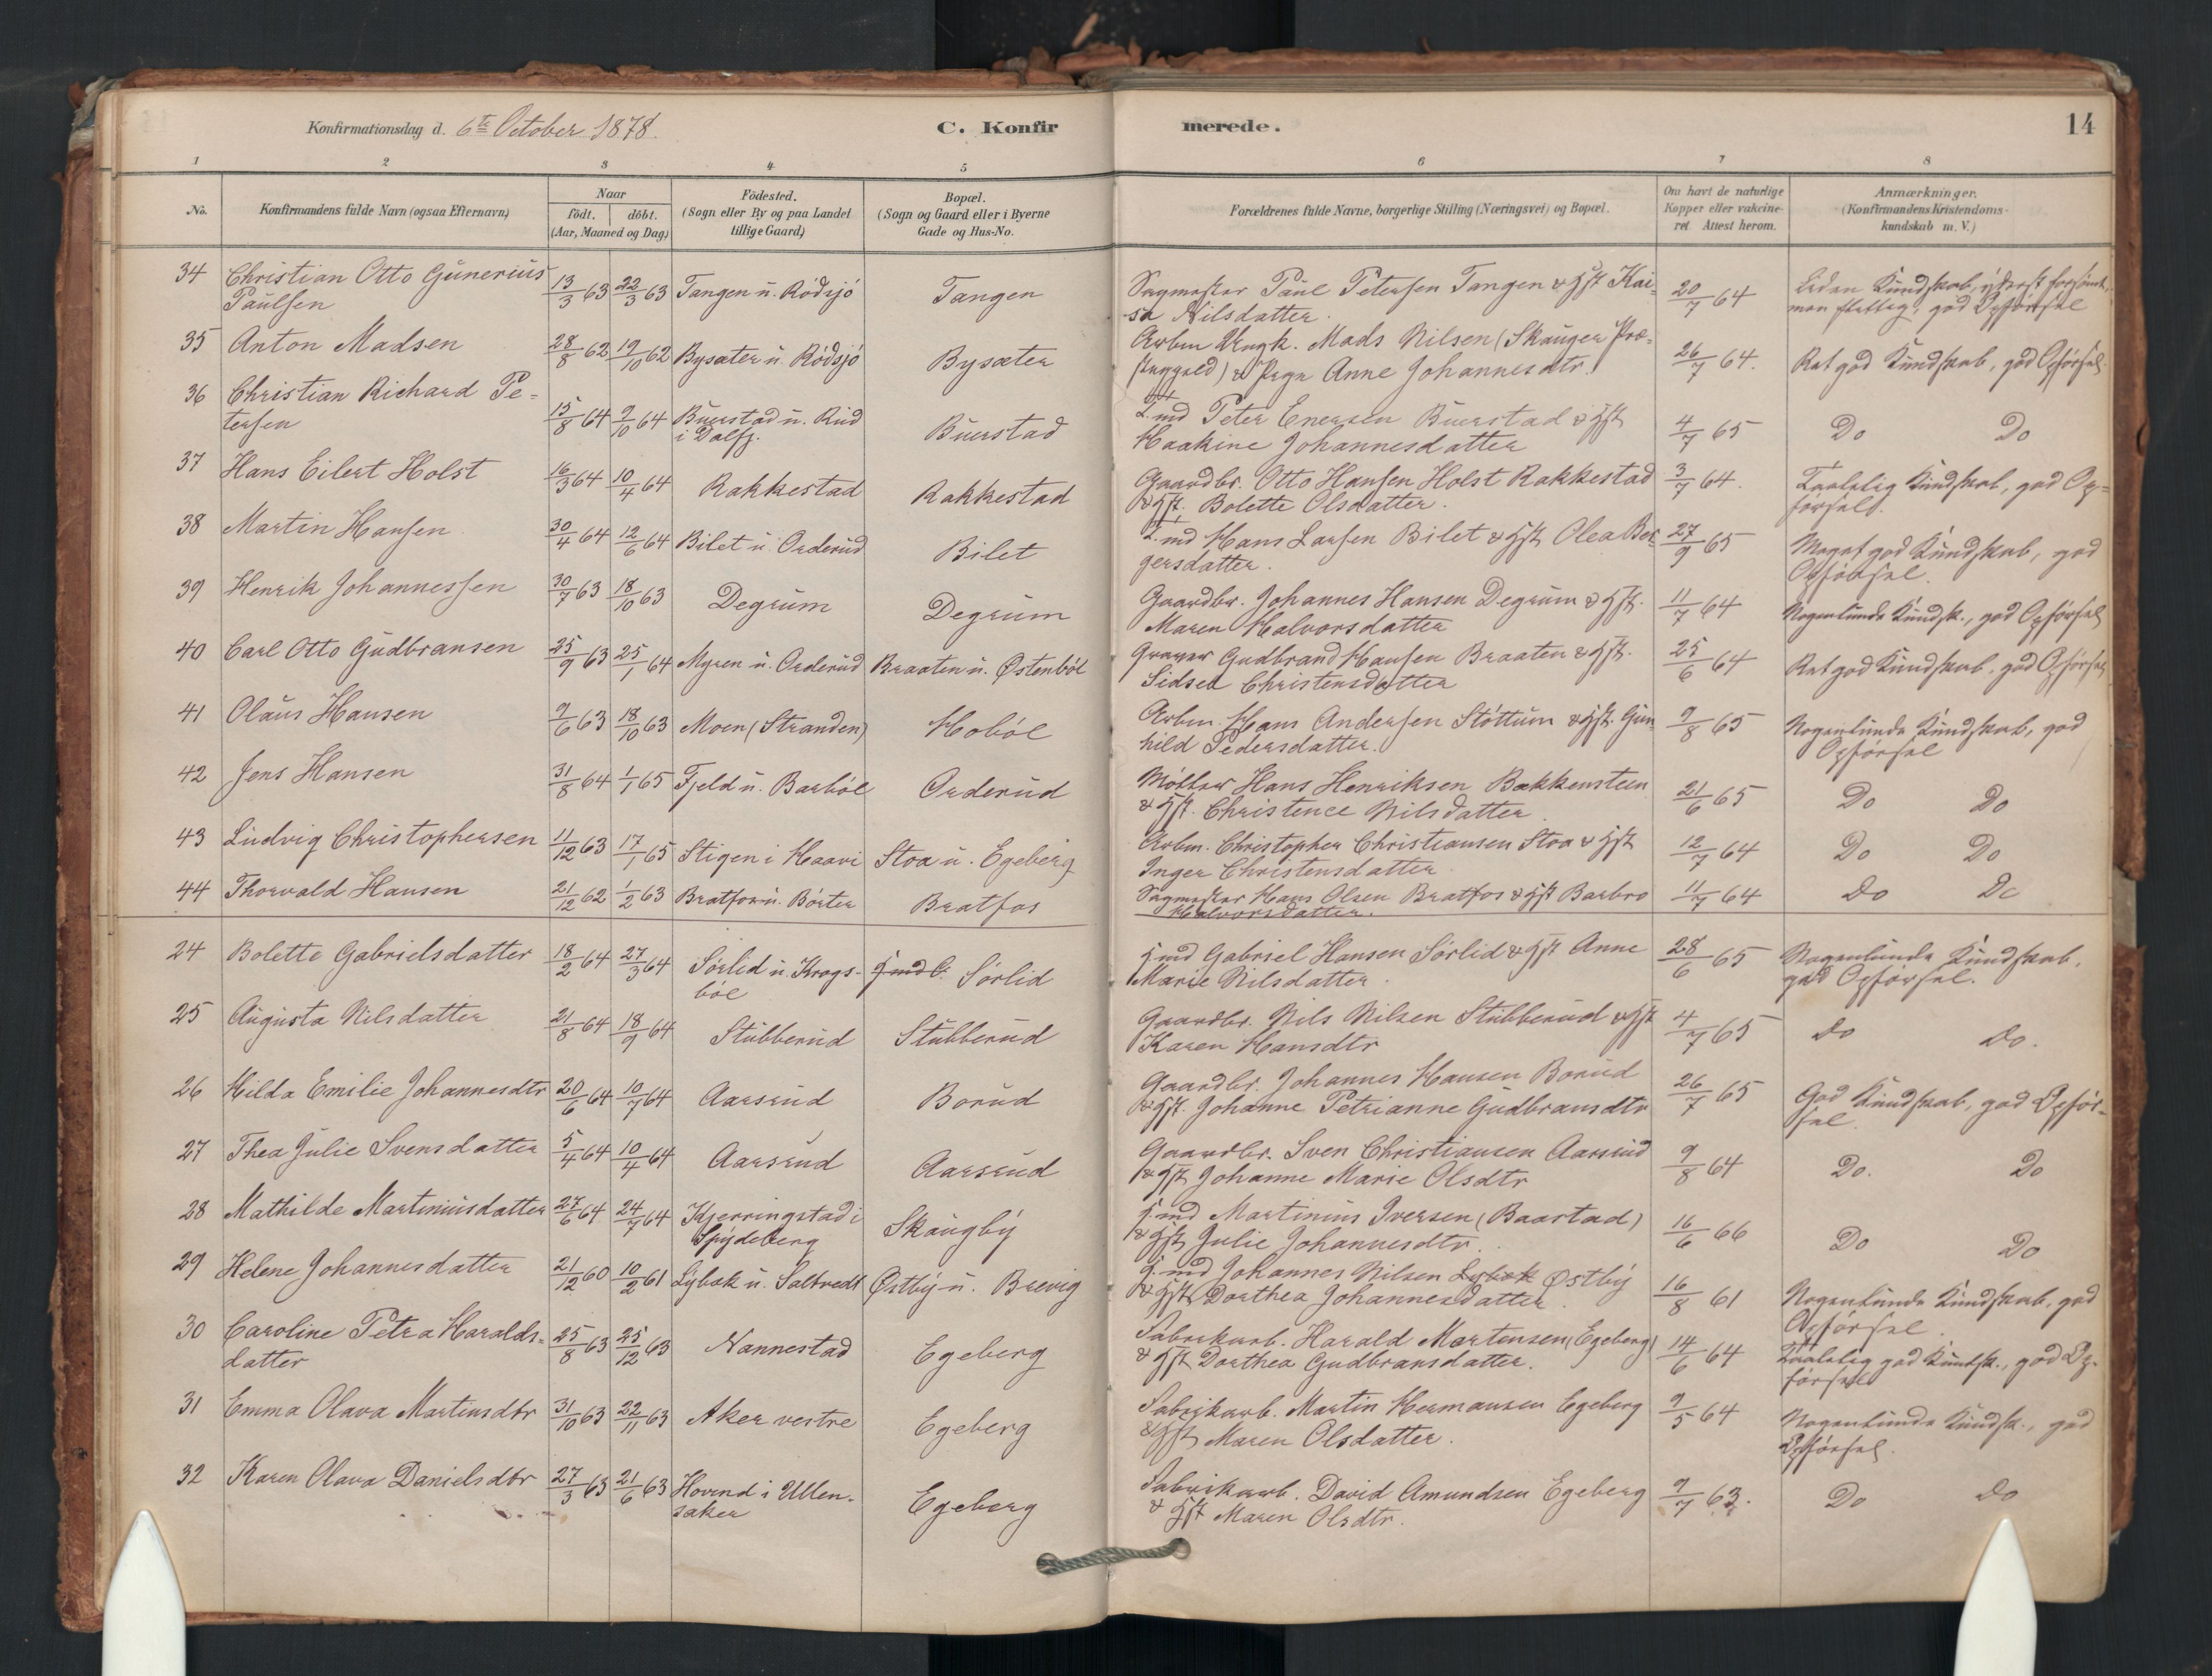 Konfirmationsdag d. 6te October 1878. C. Konfirmerede. 14
1 2 3 4 5 6 7 8
No. Konfirmandens fulde Navn (ogsaa Efternavn) Naar födt. döbt. (Aar, Maaned og Dag) Födested. (Sogn eller By og paa Landet tillige Gaard) Bopæl. (Sogn og Gaard eller i Byerne Gade og Hus-No. Forældrenes fulde Navne, borgerlige Stilling (Næringsvei) og Bopæl. Om havt de naturlige Kopper eller vakcineret. Attest herom. Anmærkninger. (Konfirmandens Kristendomskundskab m. V.)
34 Christian Otto Gunerius Paulsen 13/3 63 22/3 63 Tangen u. Rödsjö Tangen Sagmester Paul Petersen Tangen & Hst Kaisa Nilsdatter. 20/7 64 Liden Kundskab, yderst forsömt, men flittig, god Opförsel
35 Anton Madsen 28/8 62 19/10 62 Bysæter u. Rödsjö Bysæter Arbm Ungk. Mads Nilsen (Skauger Præstegjeld) & Pige Anne Johannesdtr. 26/7 64. Ret god Kundskab, god Opförsel.
36 Christian Richard Petersen 15/8 64 9/10 64 Buerstad u. Rud i Dalfj. Buerstad Peter Enersen Buerstad & Hst Haakine Johannesdatter 4/7 65 Do Do
37 Hans Eilert Holst 16/3 64 10/4 64 Rakkestad Rakkestad Gaardbr. Otto Hansen Holst Rakkestad & Hst. Bolette Olsdatter. 3/7 64. Taalelig Kundskab, god Opförsel.
38 Martin Hansen 30/4 64 12/6 64 Bilet u. Orderud Bilet Hans Larsen Bilet & Hst Olea Bergersdatter. 27/9 65 Meget god Kundskab, god Opförsel.
39 Henrik Johannessen 30/7 63 18/10 63 Degrum Degrum Gaardbr. Johannes Hansen Degrum & Hst. Maren Halvorsdatter 11/7 64 Nogenlunde Kundsk., god Opförsel
40 Carl Otto Gudbransen 25/9 63 25/1 64 Myren u. Orderud Braaten u. Østenböl Graver Gudbrand Hansen Braaten & Hst. Sidsel Christensdatter 25/6 64 Ret god Kundskab, god Opförsel
41 Olaus Hansen 9/6 63 18/10 63 Moen (Stranden) Hoböl Arbm. Hans Andersen Störtum & Hst. Gunhild Pedersdatter. 9/8 65 Nogenlunde Kundskab, god Opförsel
42 Jens Hansen 31/8 64 1/1 65 Fjeld u. Barböl Orderud Möller Hans Henriksen Bakkensteen & Hst. Christence Nilsdatter. 21/6 65 Do Do
43 Ludvig Christophersen 11/12 63 17/1 65 Stigen i Haavi Stoa u. Egeberg Arbm. Christopher Christiansen Stoa & Hst Inger Christensdatter. 12/7 64 Do Do
44 Thorvald Hansen 21/12 62 1/2 63 Bratfos u. Börter Bratfos Sagmester Hans Olsen Bratfos & Hst Barbro Halvorsdatter. 11/7 64 Do Do
24 Bolette Gabrielsdatter 18/2 64 27/3 64 Sörlid u. Krogsböl Sörlid Gabriel Hansen Sörlid & Hst Anne Marie Nilsdatter. 28/6 65 Nogenlunde Kundskab, god Opförsel.
25 Augusta Nilsdatter 21/8 64 18/9 64 Stubberud Stubberud Gaardbr. Nils Nilsen Stubberud & Hst Karen Hansdtr 4/7 65 Do Do.
26 Hilda Emilie Johannesdtr 20/6 64 10/7 64 Aarsrud Borud Gaardbr. Johannes Hansen Borud & Hst. Johanne Petrianne Gudbransdtr 26/7 65 God Kundskab, god Opförsel
27 Thea Julie Svensdatter 5/4 64 10/4 64 Aarsrud Aarsrud Gaardbr. Sven Christiansen Aarsrud & Hst Johanne Marie Olsdtr 9/8 64 Do. Do
28 Mathilde Martiniusdatter 27/6 64 24/7 64 Kjerringstad i Spydeberg Skaugby Martinius Iversen (Baastad) & Hst Julie Johannesdtr. 16/6 66 Do Do
29 Helene Johannesdatter 21/12 60 10/2 61 Lybæk u. Saltvedt Østby u. Brevig Johannes Nilsen Lybæk Østby & Hst Dorthea Johannesdatter. 16/8 61 Nogenlunde Kundskab, god Opförsel.
30 Caroline Petra Haraldsdatter 25/8 63 25/12 63 Nannestad Egeberg Fabrikarb. Harald Martensen (Egeberg) & Hst Dorthea Gudbransdatter. 14/6 64 Taalelig god Kundsk., god Opförsel
31 Emma Olava Martinsdtr 31/10 63 22/11 63 Aker vestre Egeberg Fabrikarb. Martin Hermansen Egeberg & Hst Maren Olsdatter. 9/5 64 Nogenlunde Kundsk., god Opförsel.
32 Karen Olava Danielsdtr 27/3 63 21/6 63 Hovind i Ullensaker Egeberg Fabrikarb. David Amundsen Egeberg & Hst Maren Olsdtr. 9/7 63. Do Do